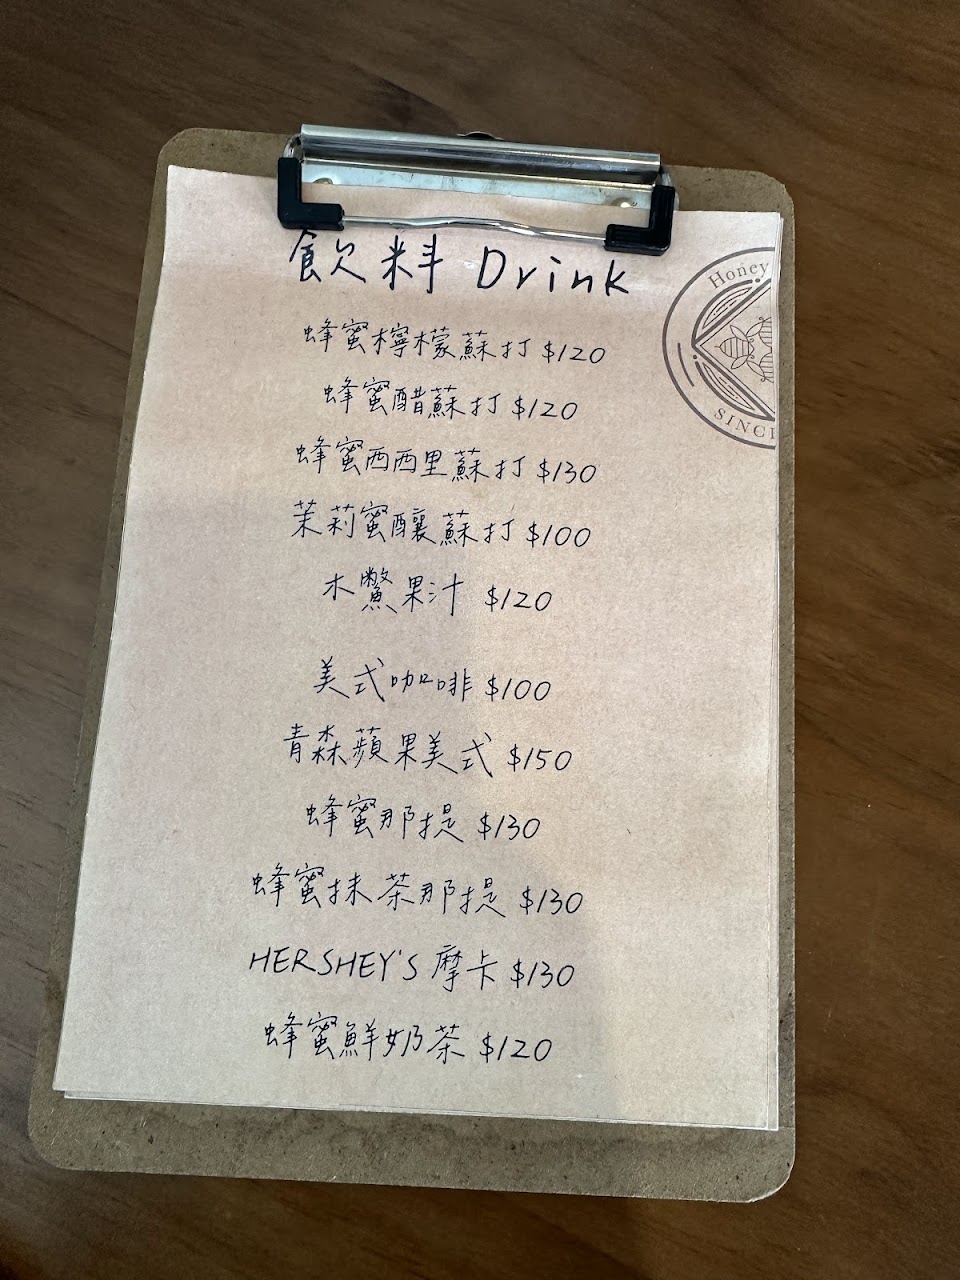 飲料 Drink
Honey
SINCE
蜂蜜檸檬蘇打 $120
蜂蜜醋蘇打 $120
蜂蜜西西里蘇打 $130
茉莉蜜釀蘇打 $100
木鱉果汁 $120
美式咖啡 $100
青森蘋果美式 $150
蜂蜜那提 $130
蜂蜜抹茶那提 $130
HERSHEY'S 摩卡 $130
蜂蜜鮮奶茶 $120